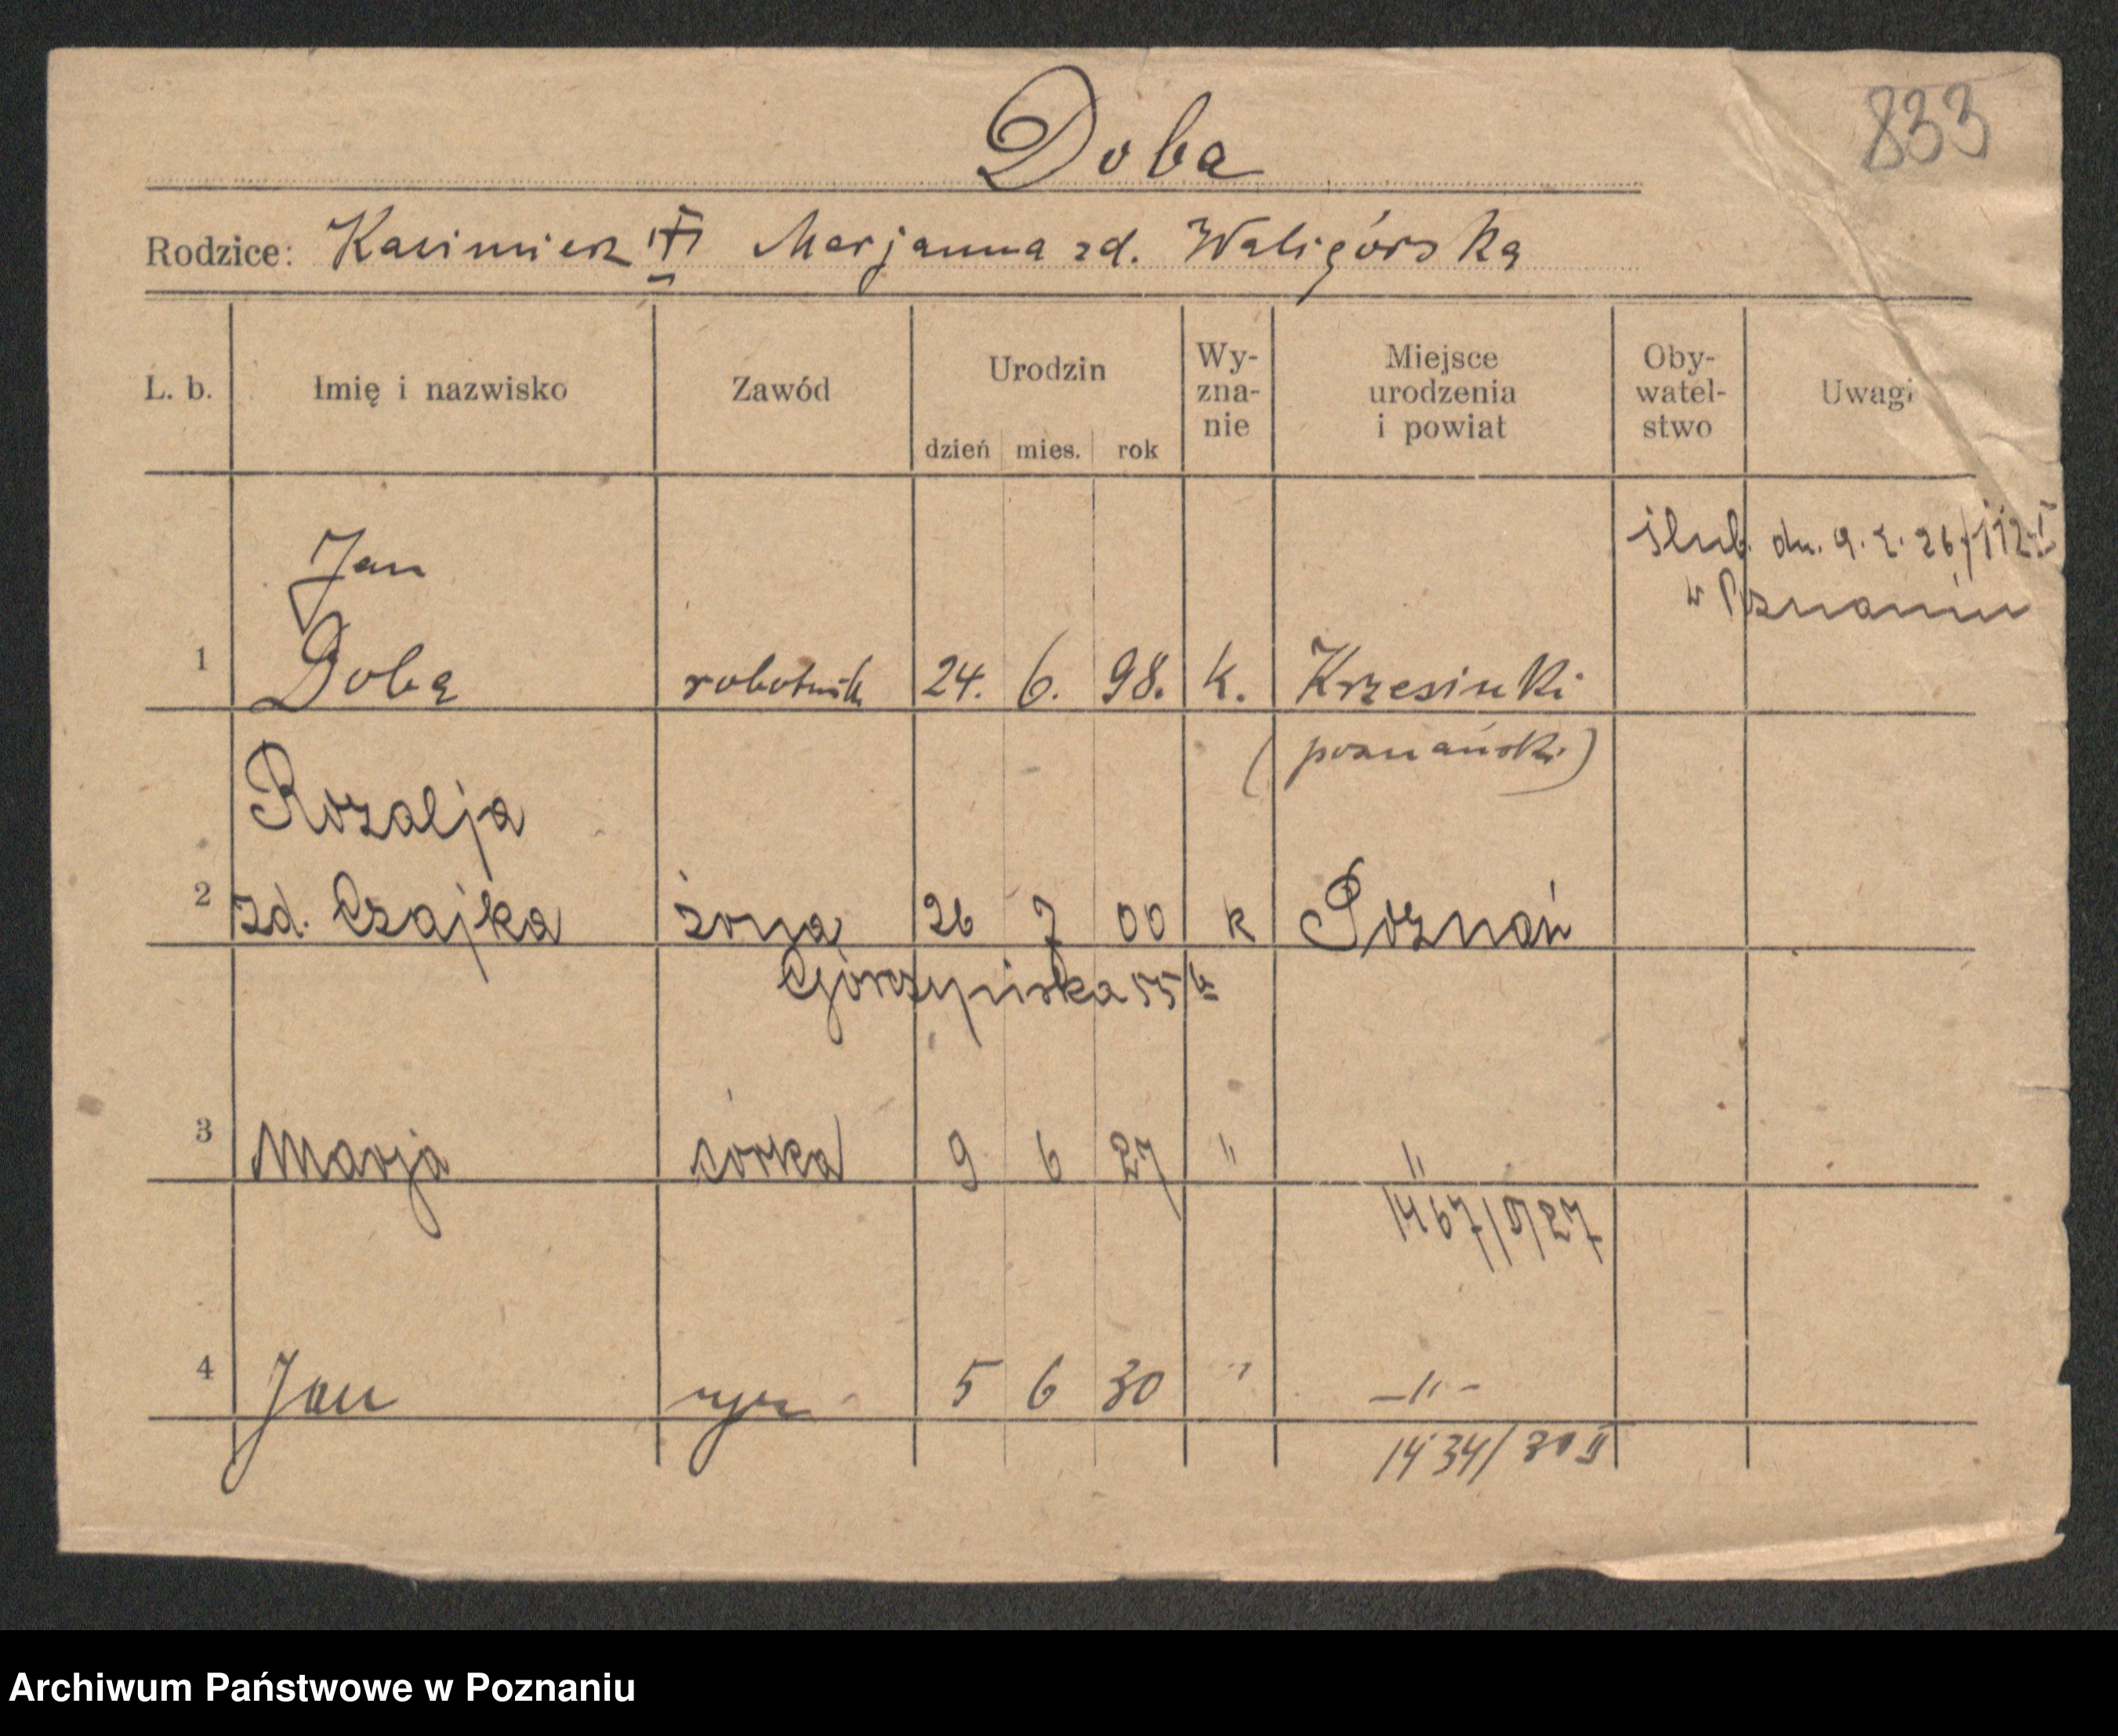 Doba
833
Rodzice: Kazimierz Marjanna zd. Waligórska
L. b. Imię i nazwisko Zawód Urodzin dzień mies. rok Wy-zna-nie Miejsce urodzenia i powiat Oby-watel-stwo Uwagi
ślub. dn. 9. 2. 26/112 I
w Poznaniu
Jan
1 Doba robotnik 24. 6. 98. k. Krzesinki
(poznański)
Rozalja
2 zd. Czajka żona 26 7 00 k Poznań
Górczyńska 55
3 Marja córka 9 6 27 " "
1467/II/27
4 Jan syn 5 6 30 " -"-
1434/30 II
Archiwum Państwowe w Poznaniu